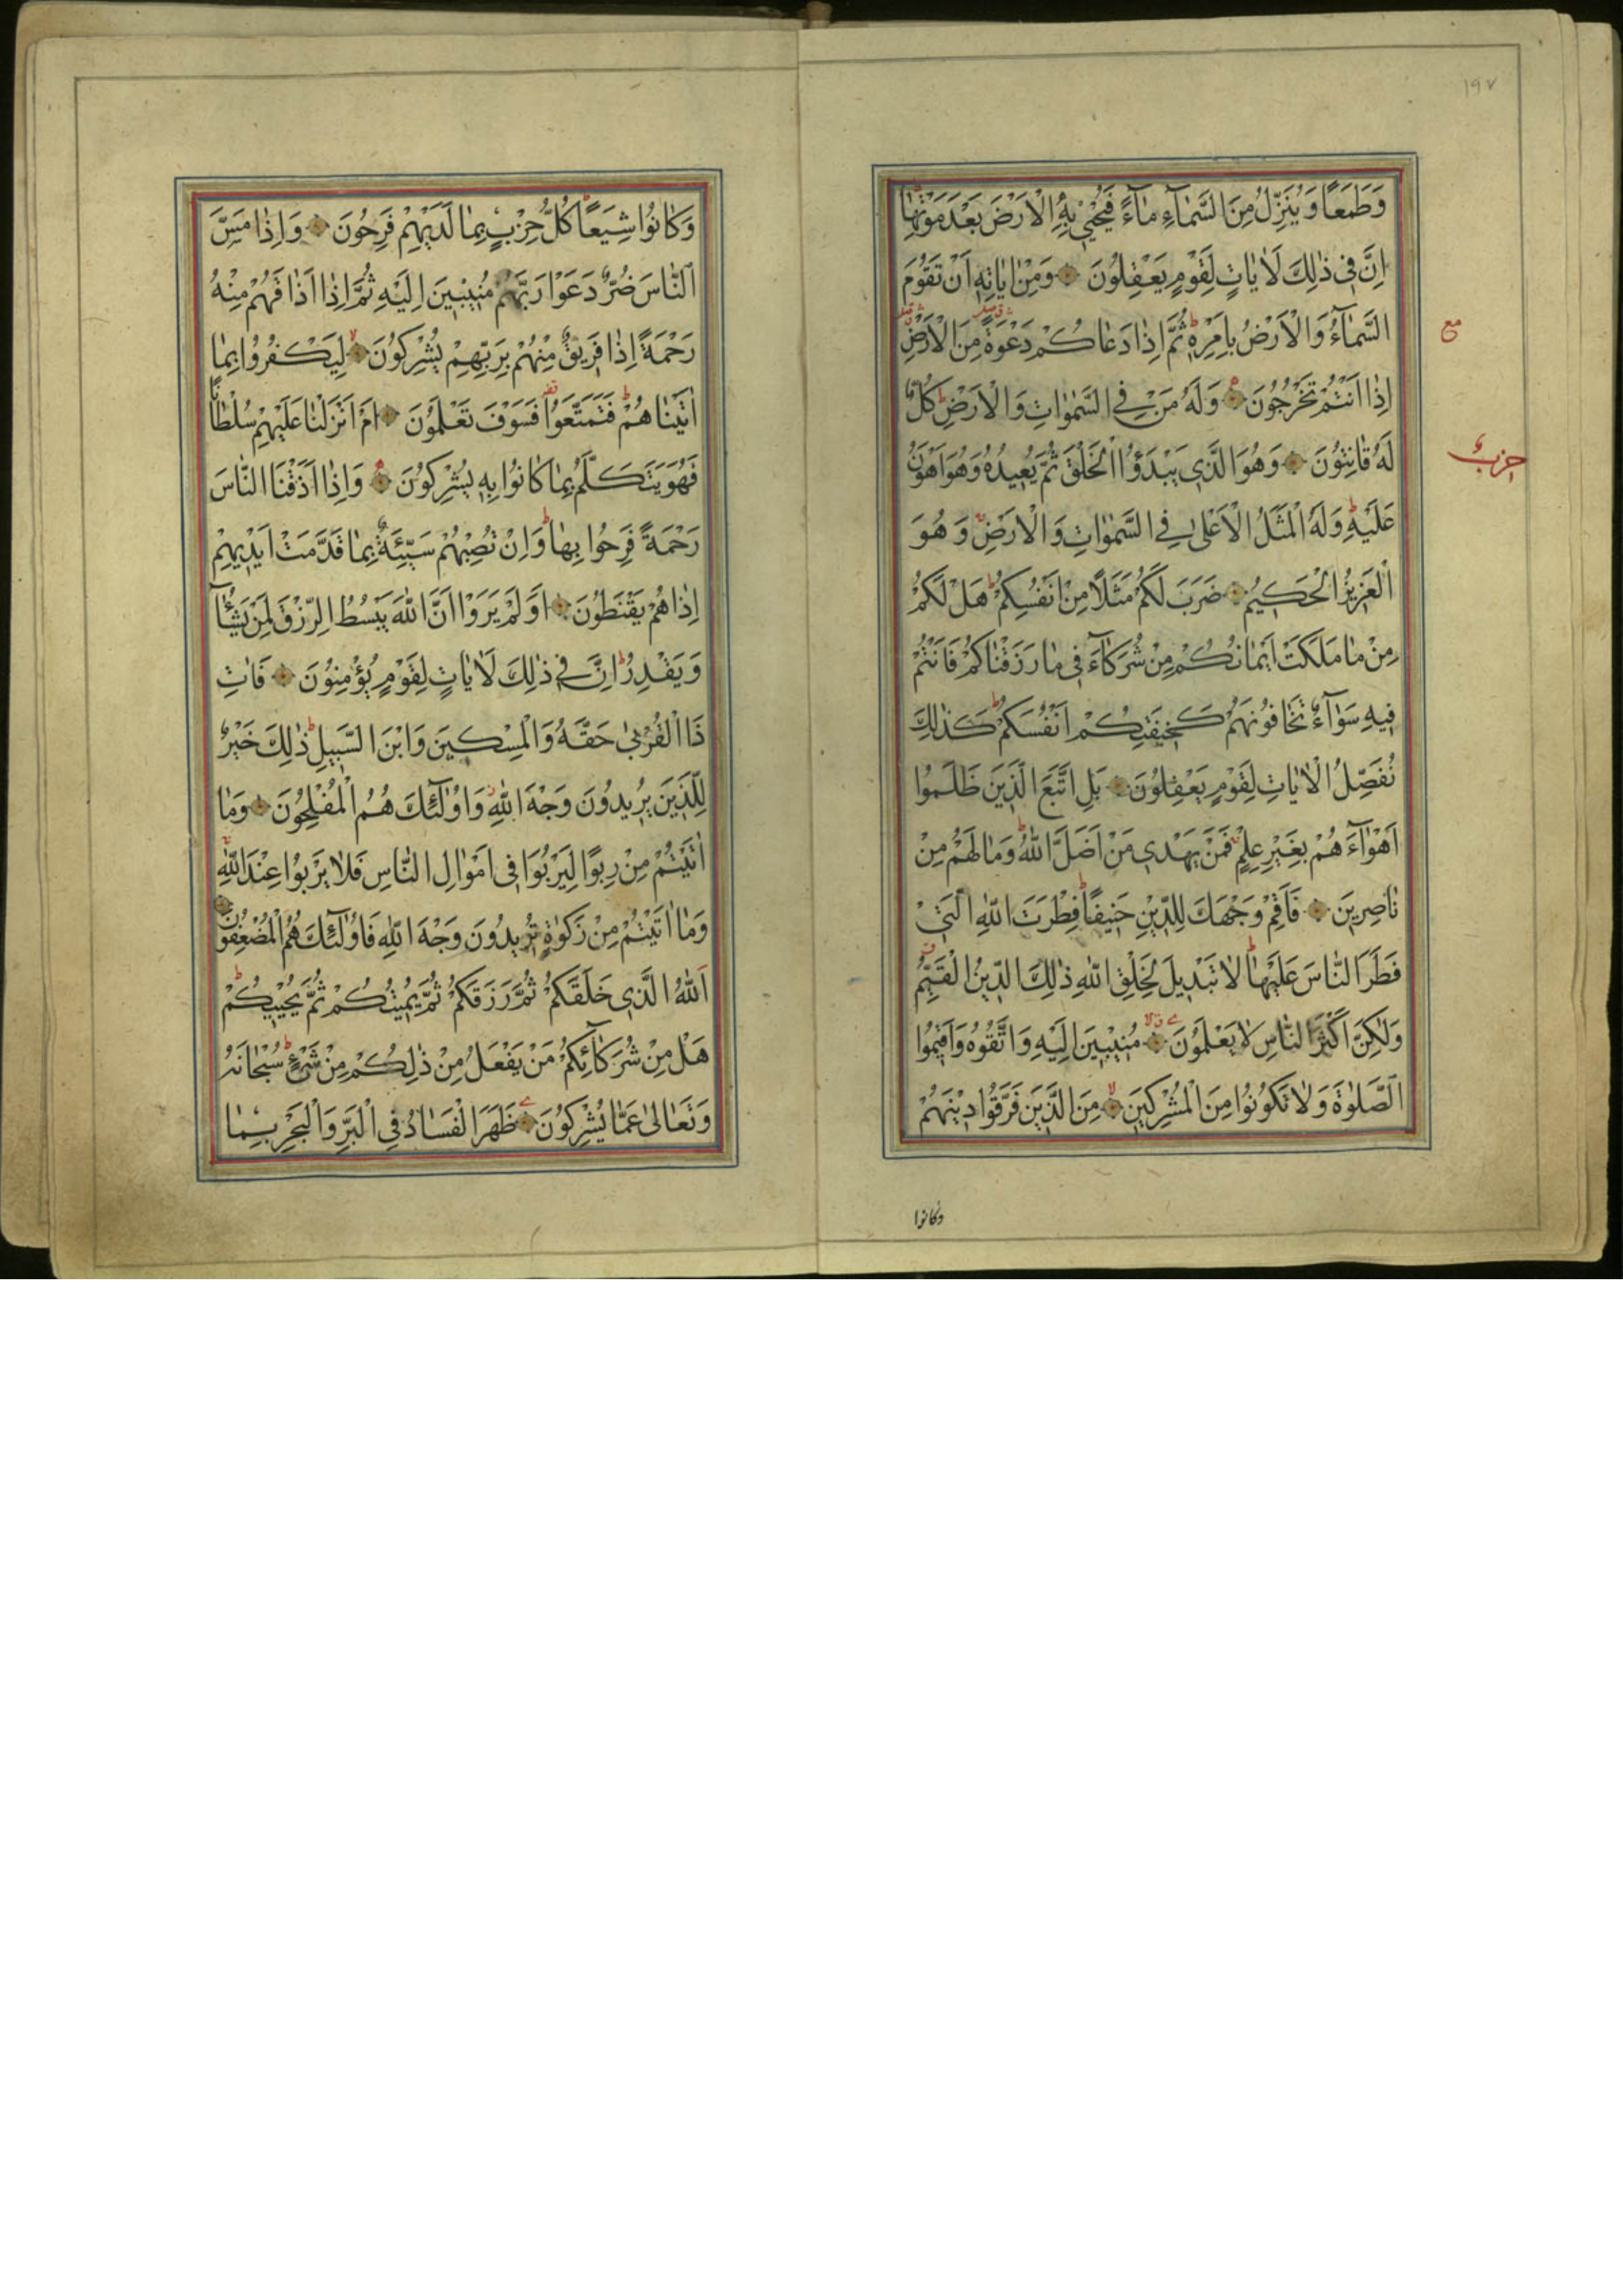 ١٩٧
وَطَمَعًا وَيُنَزِّلُ مِنَ السَّمَاءِ مَاءً فَيُحْيِي بِهِ الْاَرْضَ بَعْدَ مَوْتِهَا
اِنَّ فِي ذٰلِكَ لَاٰيَاتٍ لِقَوْمٍ يَعْقِلُونَ وَمِنْ اٰيَاتِهِ اَنْ تَقُومَ
السَّمَاءُ وَالْاَرْضُ بِاَمْرِهِ ثُمَّ اِذَا دَعَاكُمْ دَعْوَةً مِنَ الْاَرْضِ
مع
اِذَا اَنْتُمْ تَخْرُجُونَ وَلَهُ مَنْ فِي السَّمٰوَاتِ وَالْاَرْضِ كُلٌّ
لَهُ قَانِتُونَ وَهُوَ الَّذِي يَبْدَؤُا الْخَلْقَ ثُمَّ يُعِيدُهُ وَهُوَ اَهْوَنُ
حزب
عَلَيْهِ وَلَهُ الْمَثَلُ الْاَعْلٰى فِي السَّمٰوَاتِ وَالْاَرْضِ وَهُوَ
الْعَزِيزُ الْحَكِيمُ ضَرَبَ لَكُمْ مَثَلًا مِنْ اَنْفُسِكُمْ هَلْ لَكُمْ
مِنْ مَا مَلَكَتْ اَيْمَانُكُمْ مِنْ شُرَكَاءَ فِي مَا رَزَقْنَاكُمْ فَاَنْتُمْ
فِيهِ سَوَاءٌ تَخَافُونَهُمْ كَخِيفَتِكُمْ اَنْفُسَكُمْ كَذٰلِكَ
نُفَصِّلُ الْاٰيَاتِ لِقَوْمٍ يَعْقِلُونَ بَلِ اتَّبَعَ الَّذِينَ ظَلَمُوا
اَهْوَاءَهُمْ بِغَيْرِ عِلْمٍ فَمَنْ يَهْدِي مَنْ اَضَلَّ اللّٰهُ وَمَا لَهُمْ مِنْ
نَاصِرِينَ فَاَقِمْ وَجْهَكَ لِلدِّينِ حَنِيفًا فِطْرَتَ اللّٰهِ الَّتِي
فَطَرَ النَّاسَ عَلَيْهَا لَا تَبْدِيلَ لِخَلْقِ اللّٰهِ ذٰلِكَ الدِّينُ الْقَيِّمُ
وَلٰكِنَّ اَكْثَرَ النَّاسِ لَا يَعْلَمُونَ مُنِيبِينَ اِلَيْهِ وَاتَّقُوهُ وَاَقِيمُوا
الصَّلٰوةَ وَلَا تَكُونُوا مِنَ الْمُشْرِكِينَ مِنَ الَّذِينَ فَرَّقُوا دِينَهُمْ
وكانوا
وَكَانُوا شِيَعًا كُلُّ حِزْبٍ بِمَا لَدَيْهِمْ فَرِحُونَ وَاِذَا مَسَّ
النَّاسَ ضُرٌّ دَعَوْا رَبَّهُمْ مُنِيبِينَ اِلَيْهِ ثُمَّ اِذَا اَذَاقَهُمْ مِنْهُ
رَحْمَةً اِذَا فَرِيقٌ مِنْهُمْ بِرَبِّهِمْ يُشْرِكُونَ لِيَكْفُرُوا بِمَا
اٰتَيْنَاهُمْ فَتَمَتَّعُوا فَسَوْفَ تَعْلَمُونَ اَمْ اَنْزَلْنَا عَلَيْهِمْ سُلْطَانًا
فَهُوَ يَتَكَلَّمُ بِمَا كَانُوا بِهِ يُشْرِكُونَ وَاِذَا اَذَقْنَا النَّاسَ
رَحْمَةً فَرِحُوا بِهَا وَاِنْ تُصِبْهُمْ سَيِّئَةٌ بِمَا قَدَّمَتْ اَيْدِيهِمْ
اِذَا هُمْ يَقْنَطُونَ اَوَلَمْ يَرَوْا اَنَّ اللّٰهَ يَبْسُطُ الرِّزْقَ لِمَنْ يَشَاءُ
وَيَقْدِرُ اِنَّ فِي ذٰلِكَ لَاٰيَاتٍ لِقَوْمٍ يُؤْمِنُونَ فَاٰتِ
ذَا الْقُرْبٰى حَقَّهُ وَالْمِسْكِينَ وَابْنَ السَّبِيلِ ذٰلِكَ خَيْرٌ
لِلَّذِينَ يُرِيدُونَ وَجْهَ اللّٰهِ وَاُولٰئِكَ هُمُ الْمُفْلِحُونَ وَمَا
اٰتَيْتُمْ مِنْ رِبًوا لِيَرْبُوَا فِي اَمْوَالِ النَّاسِ فَلَا يَرْبُوا عِنْدَ اللّٰهِ
وَمَا اٰتَيْتُمْ مِنْ زَكٰوةٍ تُرِيدُونَ وَجْهَ اللّٰهِ فَاُولٰئِكَ هُمُ الْمُضْعِفُونَ
اَللّٰهُ الَّذِي خَلَقَكُمْ ثُمَّ رَزَقَكُمْ ثُمَّ يُمِيتُكُمْ ثُمَّ يُحْيِيكُمْ
هَلْ مِنْ شُرَكَائِكُمْ مَنْ يَفْعَلُ مِنْ ذٰلِكُمْ مِنْ شَيْءٍ سُبْحَانَهُ
وَتَعَالٰى عَمَّا يُشْرِكُونَ ظَهَرَ الْفَسَادُ فِي الْبَرِّ وَالْبَحْرِ بِمَا